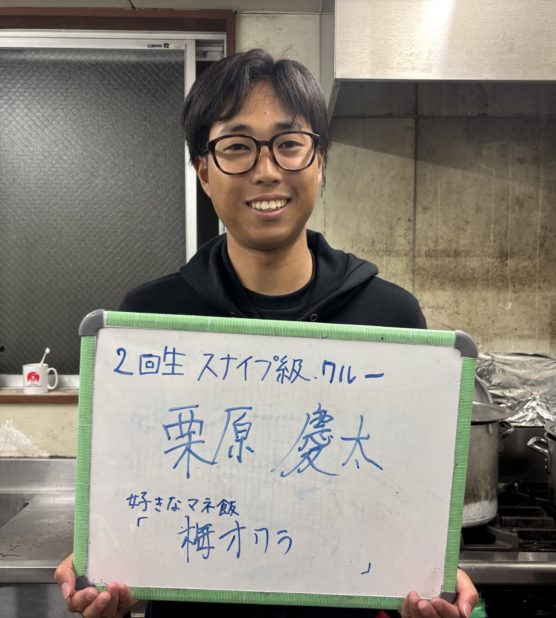 2回生 スナイプ級.クルー
栗原 慶太
好きなマネ飯
「 梅オクラ 」